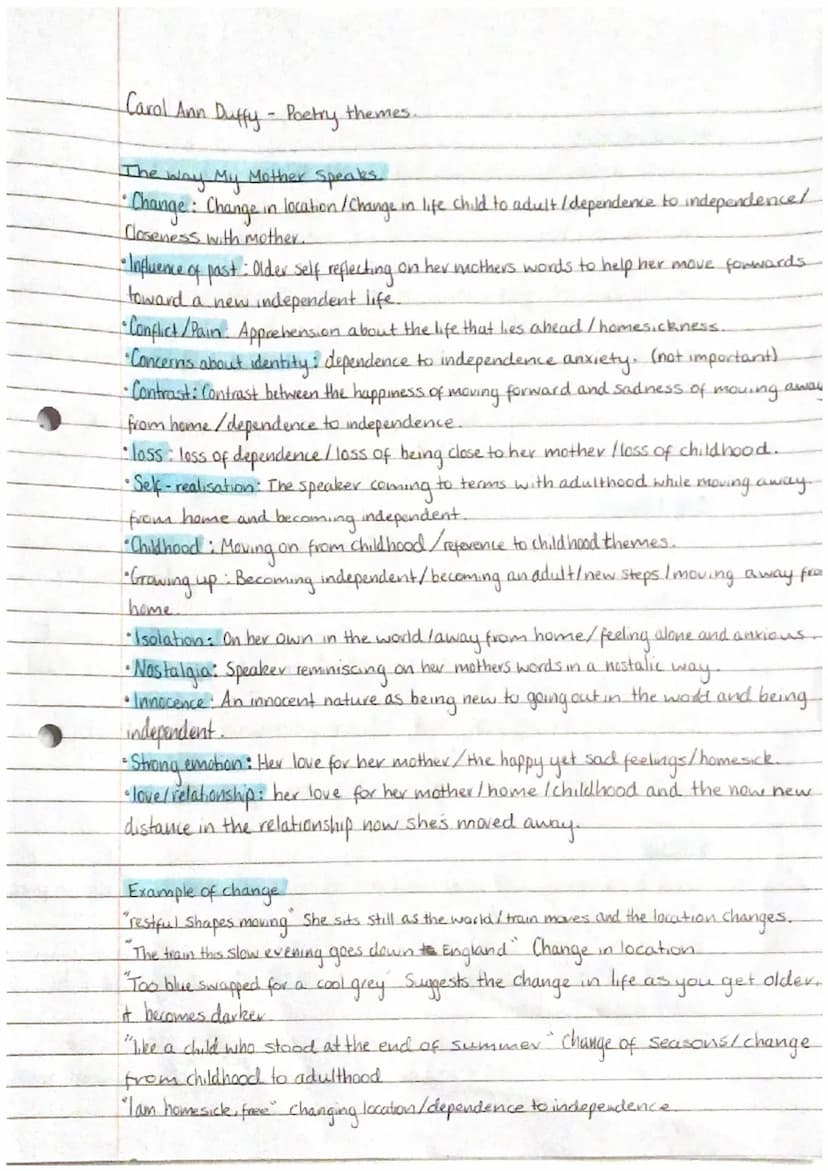 Carol Ann Duffy - Poetry themes.
The way My Mother Speaks.
• Change: Change in location/Change in life child to adult/dependence to independence/
Closeness with mother.
• Influence of past: Older self reflecting on her mothers words to help her move forwards
toward a new independent life.
• Conflict/Pain: Apprehension about the life that lies ahead/homesickness.
• Concerns about identity: dependence to independence anxiety. (not important)
• Contrast: Contrast between the happiness of moving forward and sadness of moving away
from home/dependence to independence.
• loss: loss of dependence/loss of being close to her mother/loss of childhood.
• Self-realisation: The speaker coming to terms with adulthood while moving away
from home and becoming independent.
• Childhood: Moving on from childhood/reference to childhood themes.
• Growing up: Becoming independent/becoming an adult/new steps/moving away fro
home.
• Isolation: On her own in the world/away from home/feeling alone and anxious.
• Nostalgia: Speaker reminiscing on her mothers words in a nostalic way.
• Innocence: An innocent nature as being new to going out in the world and being
independent.
• Strong emotion: Her love for her mother/the happy yet sad feelings/homesick.
• love/relationship: her love for her mother/home/childhood and the now new
distance in the relationship now she's moved away.
Example of change
"restful Shapes moving" She sits still as the world/train moves and the location changes.
"The train this slow evening goes down England" Change in location
"Too blue swapped for a cool grey" Suggests the change in life as you get older.
It becomes darker.
"like a child who stood at the end of summer" Change of seasons/change
from childhood to adulthood
"I am homesick, free" Changing location/dependence to independence.